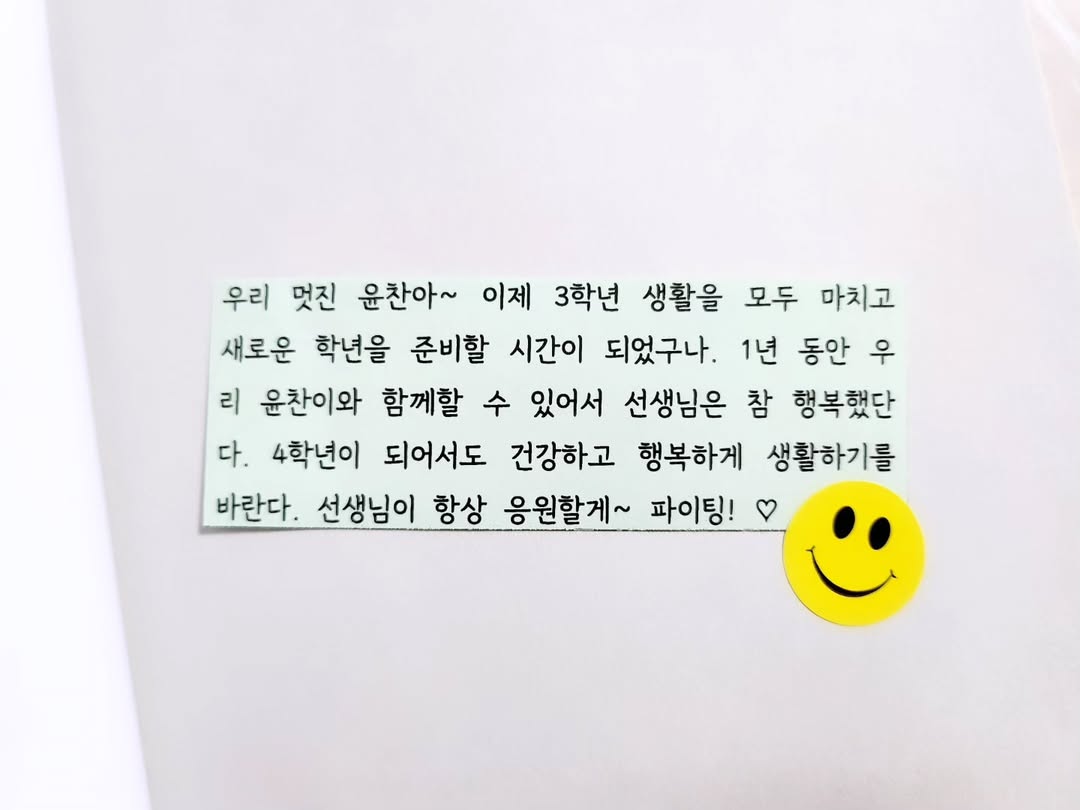 우리 멋진 윤찬아~ 이제 3학년 생활을 모두 마치고
새로운 학년을 준비할 시간이 되었구나. 1년 동안 우
리 윤찬이와 함께할 수 있어서 선생님은 참 행복했단
다. 4학년이 되어서도 건강하고 행복하게 생활하기를
바란다. 선생님이 항상 응원할게~ 파이팅! ♡